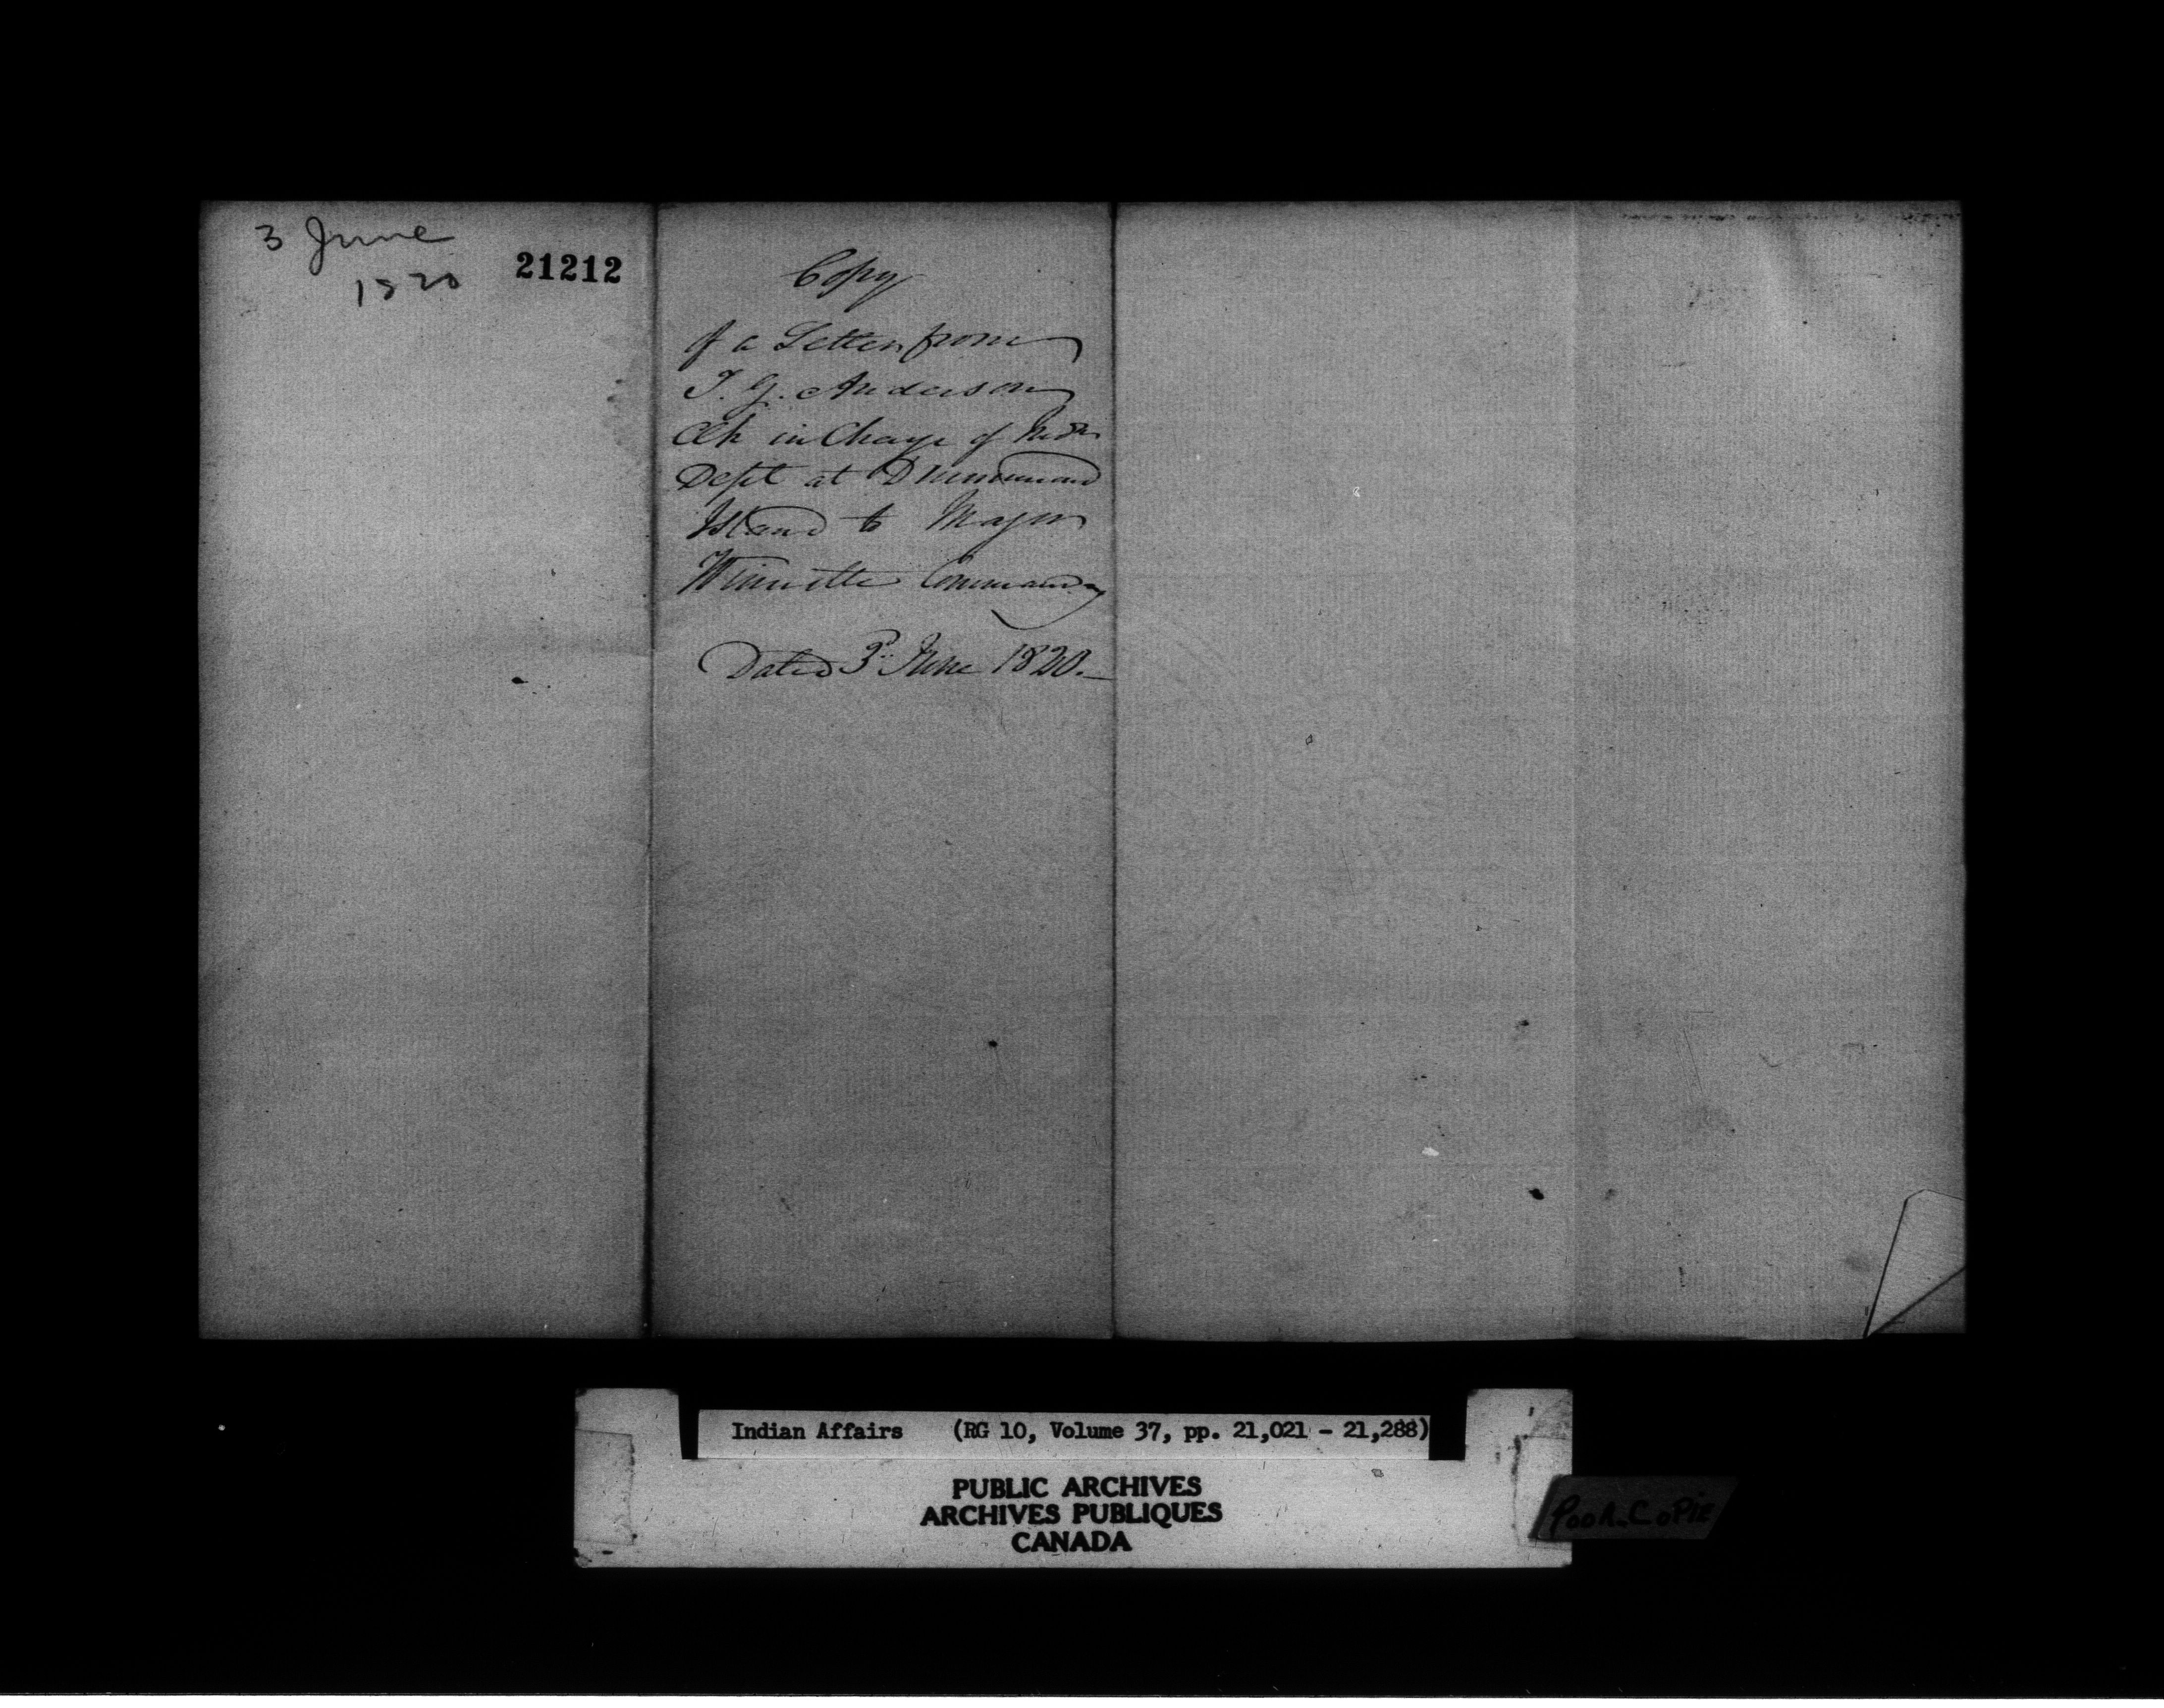 3 June
1820
21212
Copy
of a Letter from
T. G. Anderson
Clk in Charge of Indn
Dept at Drummond
Island to Major
Winnette Commandg
Dated 3d June 1820.
Indian Affairs (RG 10, Volume 37, pp. 21,021 - 21,288)
PUBLIC ARCHIVES
ARCHIVES PUBLIQUES
CANADA
Poor Copie